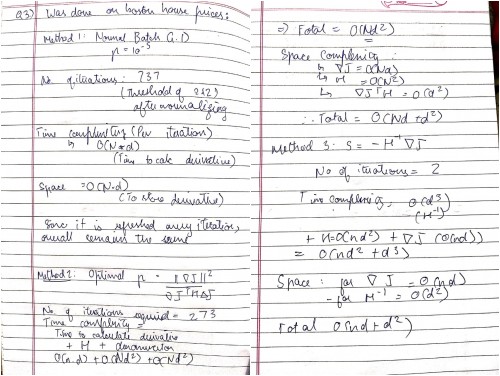 Q3) Was done on boston house prices:
Method 1: Normal Batch G.D
η = 10⁻⁵
No of iterations: 737
(Threshold of
after normalizing
Time complexity (Per iteration)
↳ O(N*d)
(Time to calc derivative)
Space = O(N.d)
(To store derivative)
Since it is refreshed every iteration,
overall remains the same
Method 2: Optimal η = ||∇J||²
∇JᵀH∇J
No of iterations required = 273
Time complexity =
Time to calculate derivative
+ H + denominator
O(n.d) + O(Nd²) + O(Nd²)
⇒ Total = O(Nd²)
Space complexity:
↳ ∇J = O(Nd)
↳ H = O(N²)
↳ ∇JᵀH = O(d²)
∴ Total = O(Nd + d²)
Method 3: S = -H⁻¹∇J
No of iterations = 2
Time complexity: O(d³)
(H⁻¹)
+ H = O(nd²) + ∇J (O(nd))
= O(nd² + d³)
Space: for ∇J = O(nd)
- for H⁻¹ = O(d²)
Total O(nd + d²)